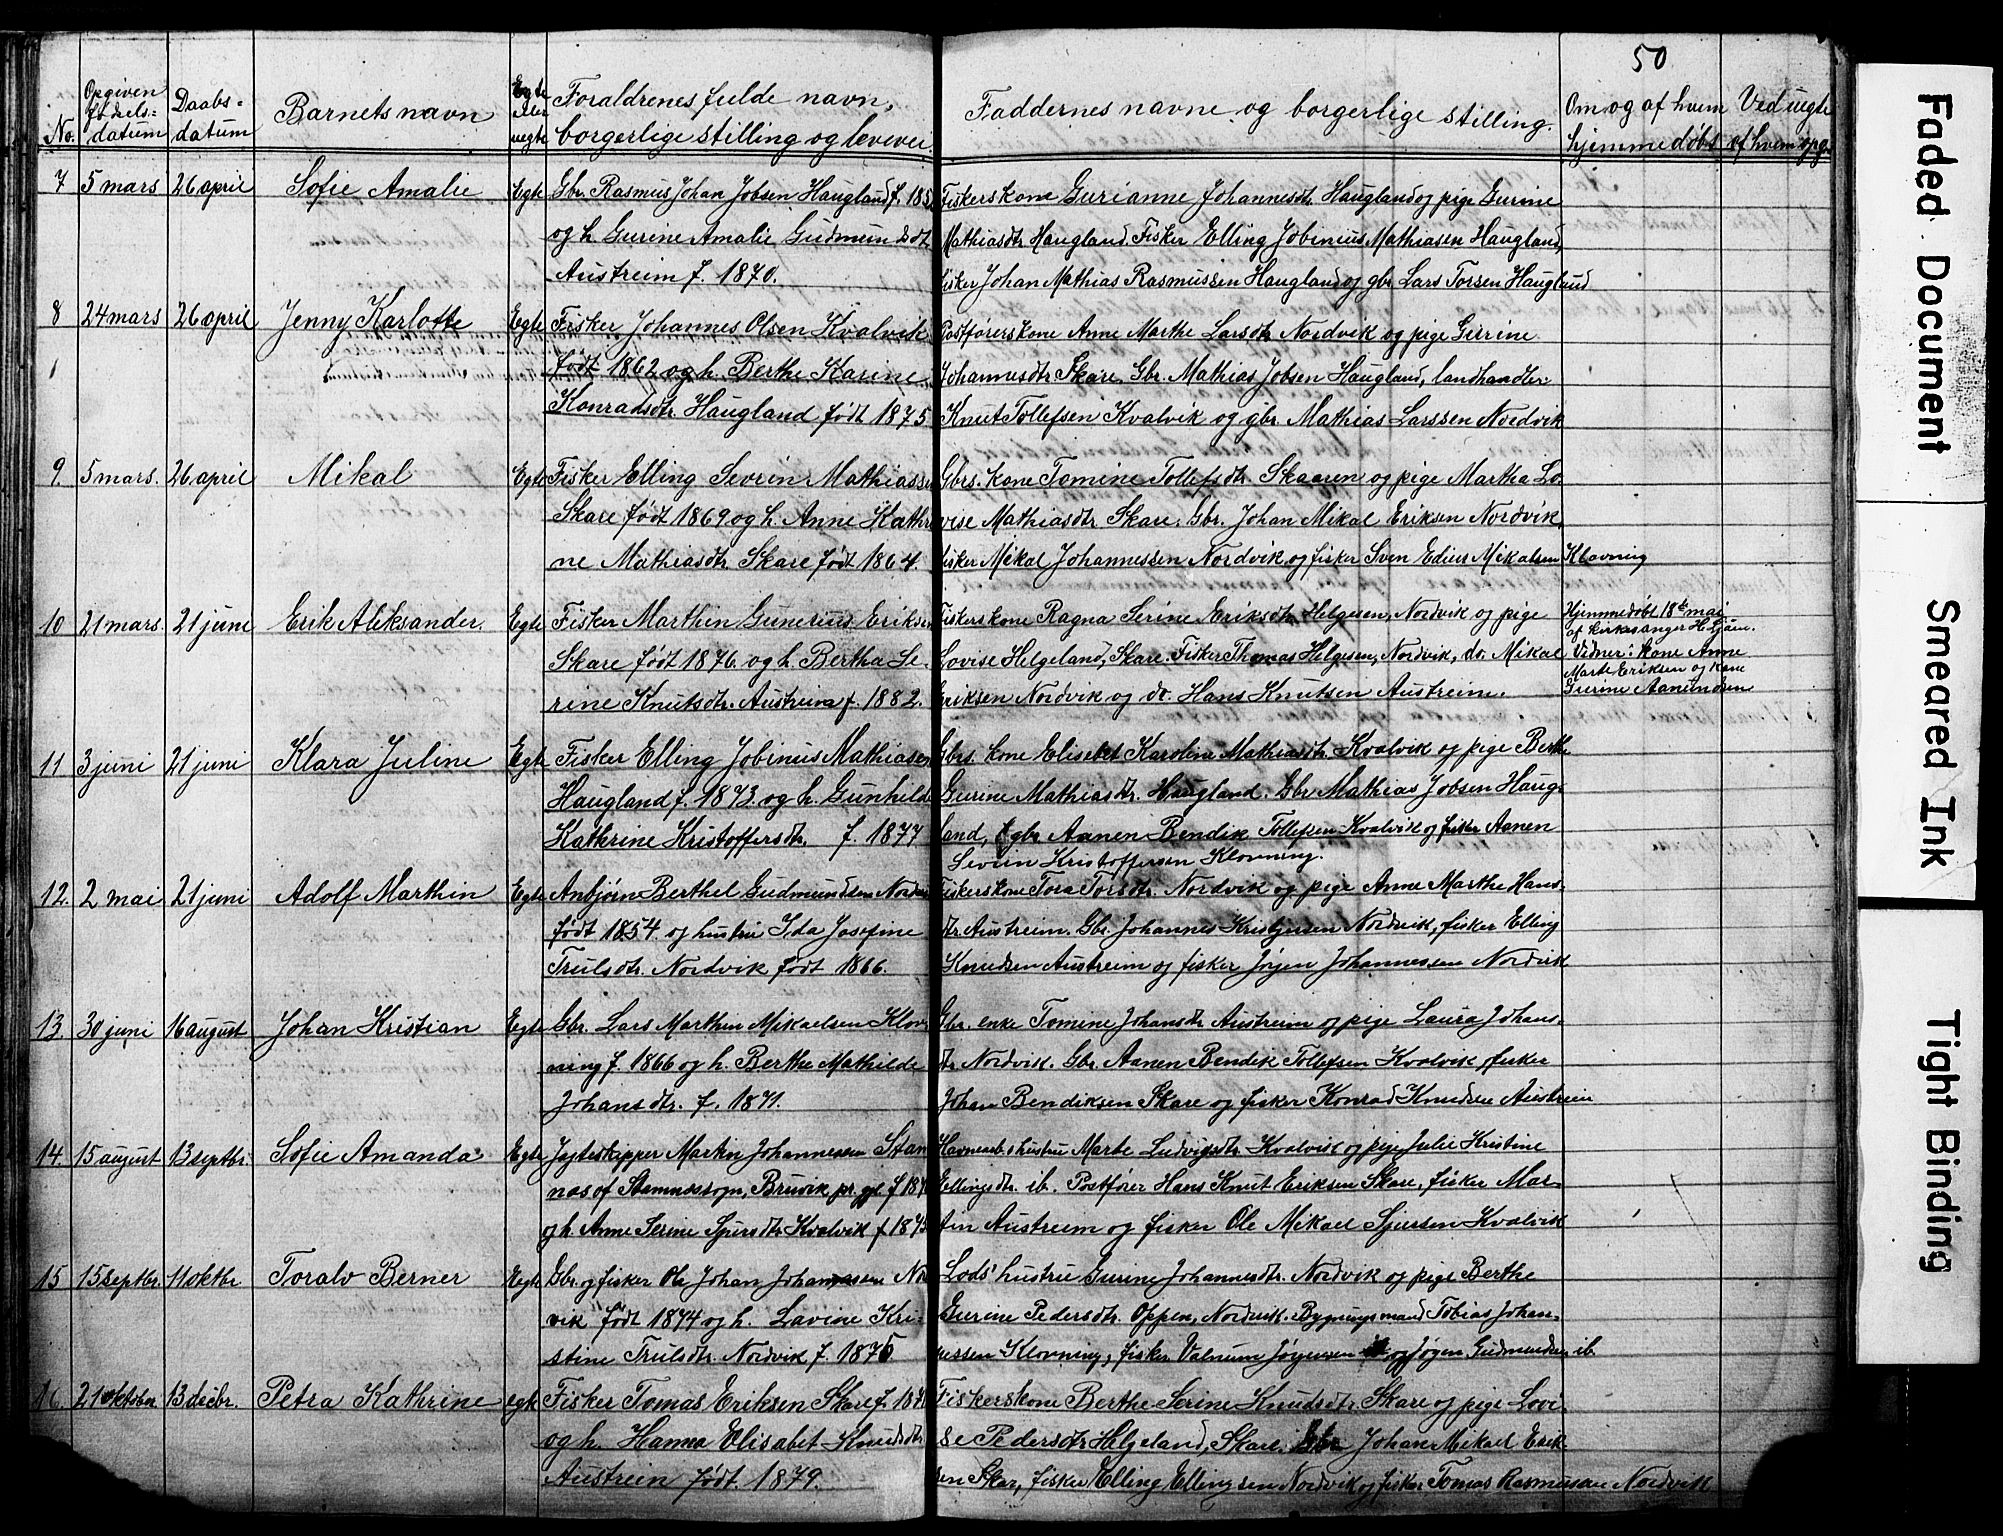 50
No.
Opgiven fødsels-datum
Daabs-datum
Barnets navn
Egte eller uegte
Foraldrenes fulde navn, borgerlige stilling og levevei
Faddernes navne og borgerlige stilling.
Om og af hvem hjemmedøbt
Ved uegte af hvem opg.
7 5 mars 26 april Sofie Amalie Egte Gbr. Rasmus Johan Jobsen Haugland f. Fiskerskone Gurianne Johannesdtr Haugland og pige Gurine
og h. Gurine Amalie Gudmundsdt. Mathiasdtr Haugland. Fisker Elling Jobinius Mathiasen Haugland,
Austreim f. 1870. fisker Johan Mathias Rasmussen Haugland og gbr Lars Torsen Haugland
8 24 mars 26 april Jenny Karlotte Egte Fisker Johannes Olsen Kvalvik Postførerskone Anne Marthe Larsdtr Nordvik og pige Gurine
født 1862 og h. Berthe Karine Johannesdtr Skare. Gbr. Mathias Jobsen Haugland, landhandler
Konradsdtr. Haugland født 1875 Knut Tollefsen Kvalvik og gbr. Mathias Larssen Nordvik
9. 5 mars. 26 april Mikal Egte Fisker Elling Sevrin Mathiassen Gbrs. kone Tomine Tollefsdtr. Skaaren og pige Martha Lo-
Skare født 1869 og h. Anne Kathri vise Mathiasdtr Skare. Gbr. Johan Mikal Eriksen Nordvik,
ne Mathiasdtr. Skare født 1864. fisker Mikal Johannessen Nordvik og fisker Sven Edius Mikalsen Klovning
10 21 mars. 21 juni Erik Aleksander. Egte Fisker Marthin Gunerius Eriksen Fiskerskone Ragna Serine Eriksdtr Helgesen, Nordvik og pige Hjemmedøbt 18de mai
af kirkesanger H. Tjøm.
Skare født 1876 og h. Bertha Se- Lovise Helgeland, Skare. Fisker Thomas Helgesen, Nordvik, do. Mikal Vidner: kone Anne
Marte Eriksen og kone
rine Knutsdtr. Austreim f. 1882. Eriksen Nordvik og do. Hans Knutsen Austreim. Gurine Aanundsen
11 3 juni 21 juni Klara Juline Egte Fisker Elling Jobinus Mathiasen Gbrs. kone Elisebet Karoline Mathiasdtr. Kvalvik og pige Berthe
Haugland f. 1873. og h. Gunhilde Gurine Mathiasdtr. Haugland. Gbr Mathias Jobsen Haug-
Kathrine Kristoffersdtr. f. 1877 land, gbr Aanen Bendik Tollefsen Kvalvik og fisker Aanen
Sevrin Kristoffersen Klovning.
12. 2 mai 21 juni Adolf Marthin Egte Anbjørn Berthel Gudmundsen Nordvik Fiskerskone Tora Torsdtr. Nordvik og pige Anne Marthe Hans-
født 1854 og hustru Ida Josefine dtr Austreim. Gbr. Johannes Nordvik, fisker Elling
Trulsdtr. Nordvik født 1866. Knudsen Austreim og fisker Jørgen Johannessen Nordvik
13. 30 juni 16 august Johan Kristian Egte Gbr. Lars Marthin Mikaelsen Klov- Gbr. enke Tomine Johansdtr Austreim og pige Laura Johans-
ning f. 1866 og h. Berthe Mathilde dtr Nordvik. Gbr. Aanen Bendik Tollefsen Kvalvik, fisker
Johansdtr. f. 1871. Johan Bendiksen Skare og fisker Konrad Knudsen Austreim
14. 15 august 13 septbr. Sofie Amanda Egte Jagteskipper Martin Johannessen Stam hustru Marte Ludvigsdtr Kvalvik og pige Julie Kristine
nes of Stamnessogn, Bruvik pr.gjl f Ellingsdtr. ib. Postfører Hans Knut Eriksen Skare, fisker Mar-
og h. Anne Serine Sjursdtr Kvalvik f 1873 tin Austreim og fisker Ole Mikael Sjursen Kvalvik
15 15 septbr. 11 oktbr Toralv Berner Egte Gbr. og fisker Ole Johan Johannessen Nord Lods' hustru Gurine Johannesdtr. Nordvik og pige Berthe
vik født 1874 og h. Lavine Kri- Gurine Pedersdtr. Oppen, Nordvik. Bygningsmand Tobias Johan-
stine Trulsdtr. Nordvik f. 1876 nessen Klovning, fisker Valnum Jørgensen og Jørgen Gudmundsen ib.
16. 21 oktober 13 decbr. Petra Kathrine egte Fisker Tomas Eriksen Skare f. Fiskerskone Berthe Serine Knudsdtr. Skare og pige Lovi-
og h. Hanna Elisabet Knudsdtr se Pedersdtr Helgeland, Skare. Gbr Johan Mikael Erik-
Austrein født. 1879. sen Skar, fisker Elling Ellingsen Nordvik og fisker Tomas Rasmussen Nordvik
Faded Document
Smeared Ink
Tight Binding